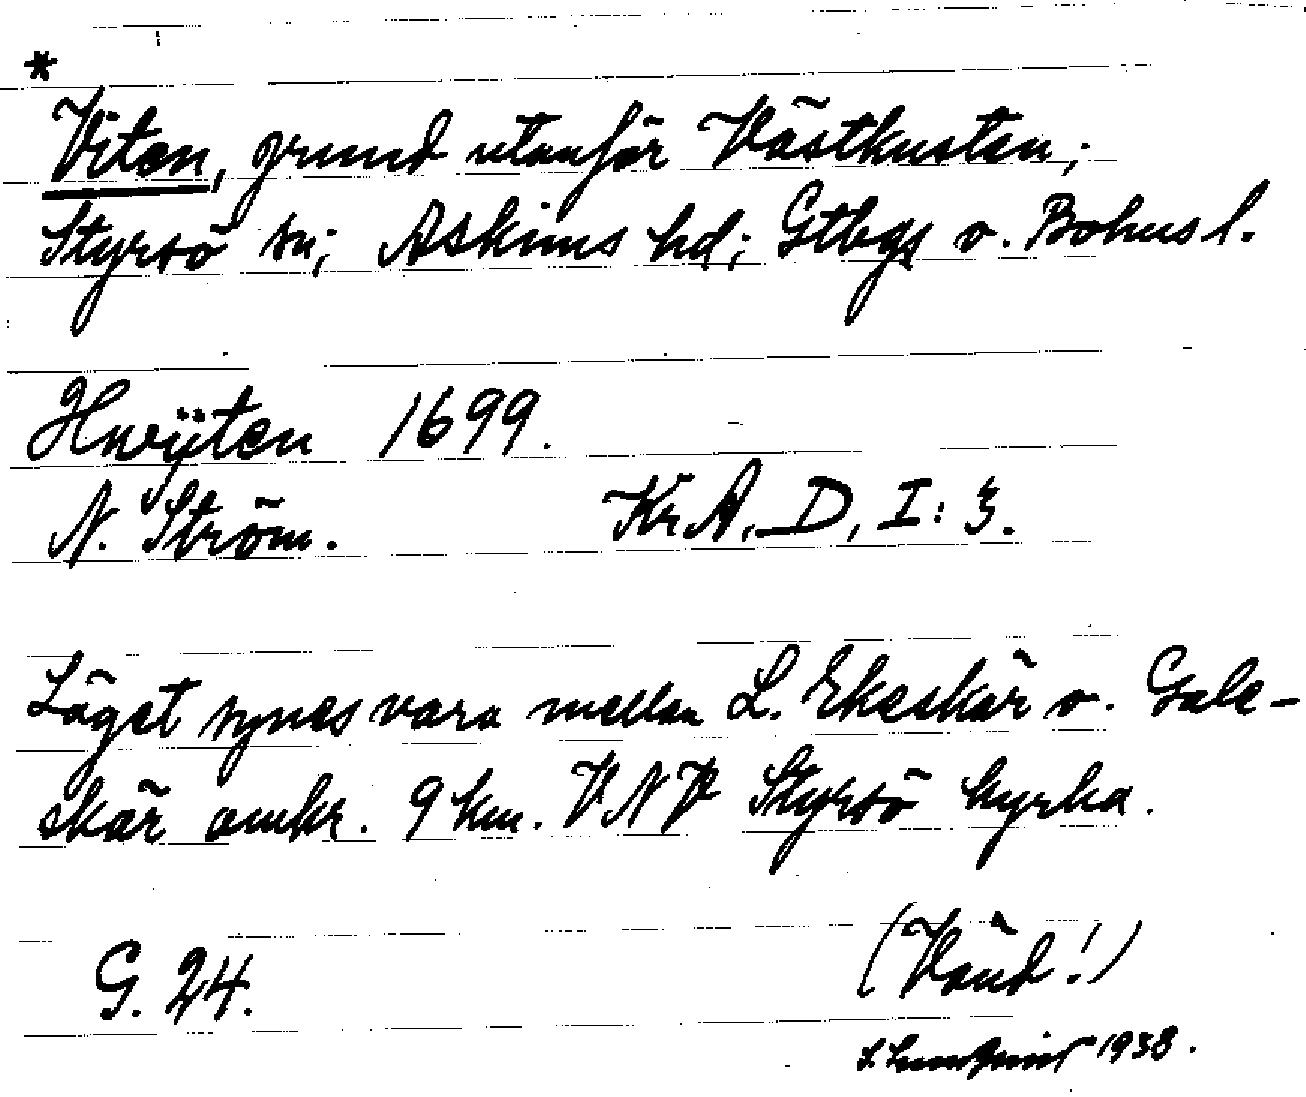 *
Viten, grund utanför Västkusten;
Styrsö sn; Askims hd; Gtbgs o. Bohusl.
Hwÿten 1699.
N. Ström. Kr.A. D, I: 3.
Läget synes vara mellan L. Ekeskär o. Gale-
skär omkr. 9 km. VNV Styrsö kyrka.
G. 24.
(Vänd!)
1938.